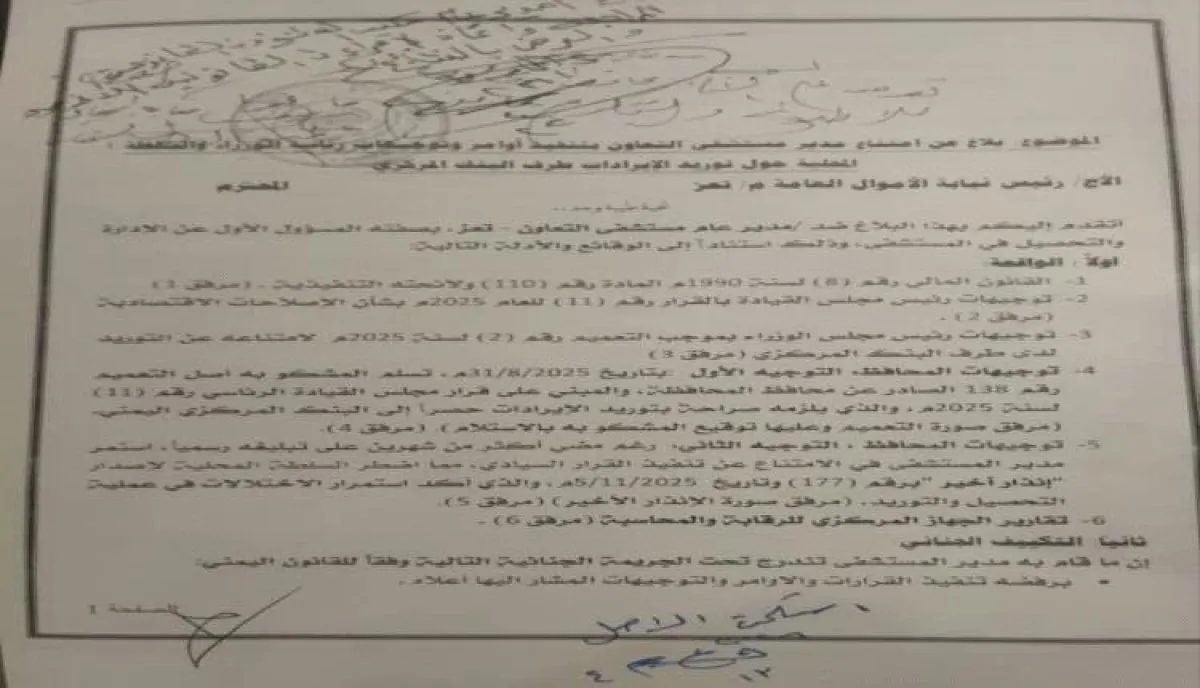 الموضوع/ بلاغ عن امتناع مدير مستشفى التعاون بتنفيذ أوامر وتوجيهات رئاسة الوزراء والسلطة
المحلية حول توريد الإيرادات طرف البنك المركزي
الأخ/ رئيس نيابة الأموال العامة م/ تعز المحترم
تحية طيبة وبعد..
اتقدم إليكم بهذا البلاغ ضد /مدير عام مستشفى التعاون - تعز، بصفته المسؤول الأول عن الإدارة
والتحصيل في المستشفى، وذلك استناداً إلى الوقائع والأدلة التالية:
اولاً : الواقعة:
1- القانون المالي رقم (8) لسنة 1990م المادة رقم (110) ولائحته التنفيذية . (مرفق 1)
2- توجيهات رئيس مجلس القيادة بالقرار رقم (11) للعام 2025م بشأن الإصلاحات الاقتصادية
(مرفق 2) .
3- توجيهات رئيس مجلس الوزراء بموجب التعميم رقم (2) لسنة 2025م لامتناعه عن التوريد
لدى طرف البنك المركزي (مرفق 3)
4- توجيهات المحافظ، التوجيه الأول :بتاريخ 31/8/2025م، تسلم المشكو به أصل التعميم
رقم 138 الصادر عن محافظ المحافظة، والمبني على قرار مجلس القيادة الرئاسي رقم (11)
لسنة 2025م، والذي يلزمه صراحة بتوريد الإيرادات حصراً إلى البنك المركزي اليمني.
(مرفق صورة التعميم وعليها توقيع المشكو به بالاستلام). (مرفق 4).
5- توجيهات المحافظ ، التوجيه الثاني، رغم مضي أكثر من شهرين على تبليغه رسمياً، استمر
مدير المستشفى في الامتناع عن تنفيذ القرار السيادي، مما اضطر السلطة المحلية لإصدار
"إنذار أخير "برقم (177) وتاريخ 5/11/2025م، والذي أكد استمرار الاختلالات في عملية
التحصيل والتوريد. (مرفق صورة الانذار الأخير) (مرفق 5).
6- تقارير الجهاز المركزي للرقابة والمحاسبة (مرفق 6) .
ثانيا: التكييف الجنائي
إن ما قام به مدير المستشفى تندرج تحت الجريمة الجنائية التالية وفقاً للقانون اليمني:
• برفضه تنفيذ القرارات والاوامر والتوجيهات المشار اليها أعلاه .
الصفحة 1
استلمت الاصل